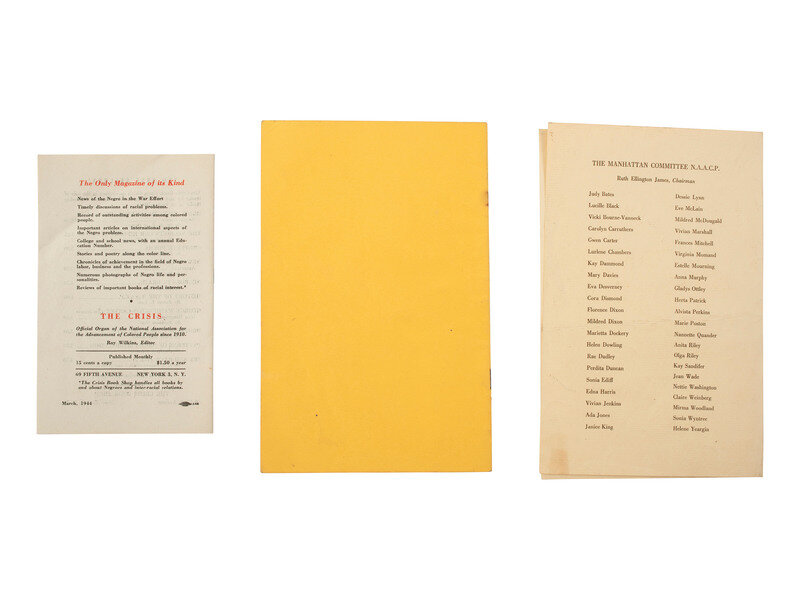 The Only Magazine of its Kind
News of the Negro in the War Effort
Timely discussions of racial problems.
Record of outstanding activities among colored
people.
Important articles on international aspects of
the Negro problem.
College and school news, with an annual Edu-
cation Number.
Stories and poetry along the color line.
Chronicles of achievement in the field of Negro
labor, business and the professions.
Numerous photographs of Negro life and per-
sonalities.
Reviews of important books of racial interest.*
THE CRISIS
Official Organ of the National Association for
the Advancement of Colored People since 1910.
Roy Wilkins, Editor
Published Monthly
15 cents a copy $1.50 a year
69 FIFTH AVENUE NEW YORK 3, N. Y.
*The Crisis Book Shop handles all books by
and about Negroes and inter-racial relations.
March, 1944
THE MANHATTAN COMMITTEE N.A.A.C.P.
Ruth Ellington James, Chairman
Judy Bates
Lucille Black
Vicki Bourne-Vanneck
Carolyn Carruthers
Gwen Carter
Lurlene Chambers
Kay Dammond
Mary Davies
Eva Desverney
Cora Diamond
Florence Dixon
Mildred Dixon
Marietta Dockery
Helen Dowling
Rae Dudley
Perdita Duncan
Sonia Ediff
Edna Harris
Vivian Jenkins
Ada Jones
Janice King
Dessie Lynn
Eve McLain
Mildred McDougald
Vivian Marshall
Frances Mitchell
Virginia Mumand
Estelle Mourning
Anna Murphy
Gladys Ottley
Herta Patrick
Alvista Perkins
Marie Poston
Nannette Quander
Anita Riley
Olga Riley
Kay Sandifer
Joan Wade
Nettie Washington
Claire Weinberg
Mirma Woodland
Sonia Wyntree
Helene Yeargin